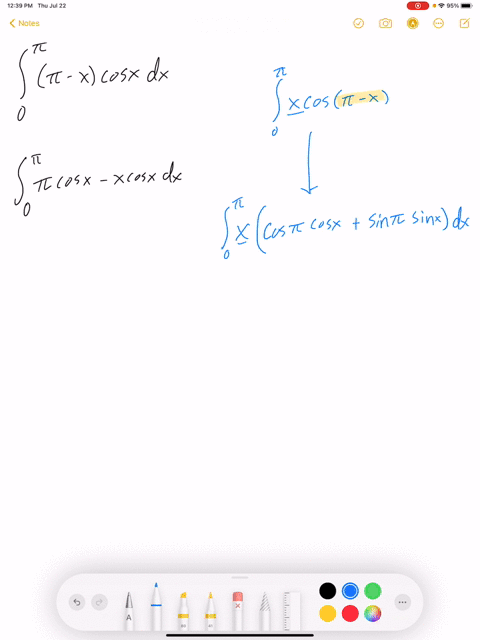 12:39 PM Thu Jul 22
95%
Notes
∫₀^π (π-x) cosx dx
∫₀^π x cos(π-x)
∫₀^π π cosx - x cosx dx
∫₀^π x (cosπ cosx + sinπ sinx) dx
A